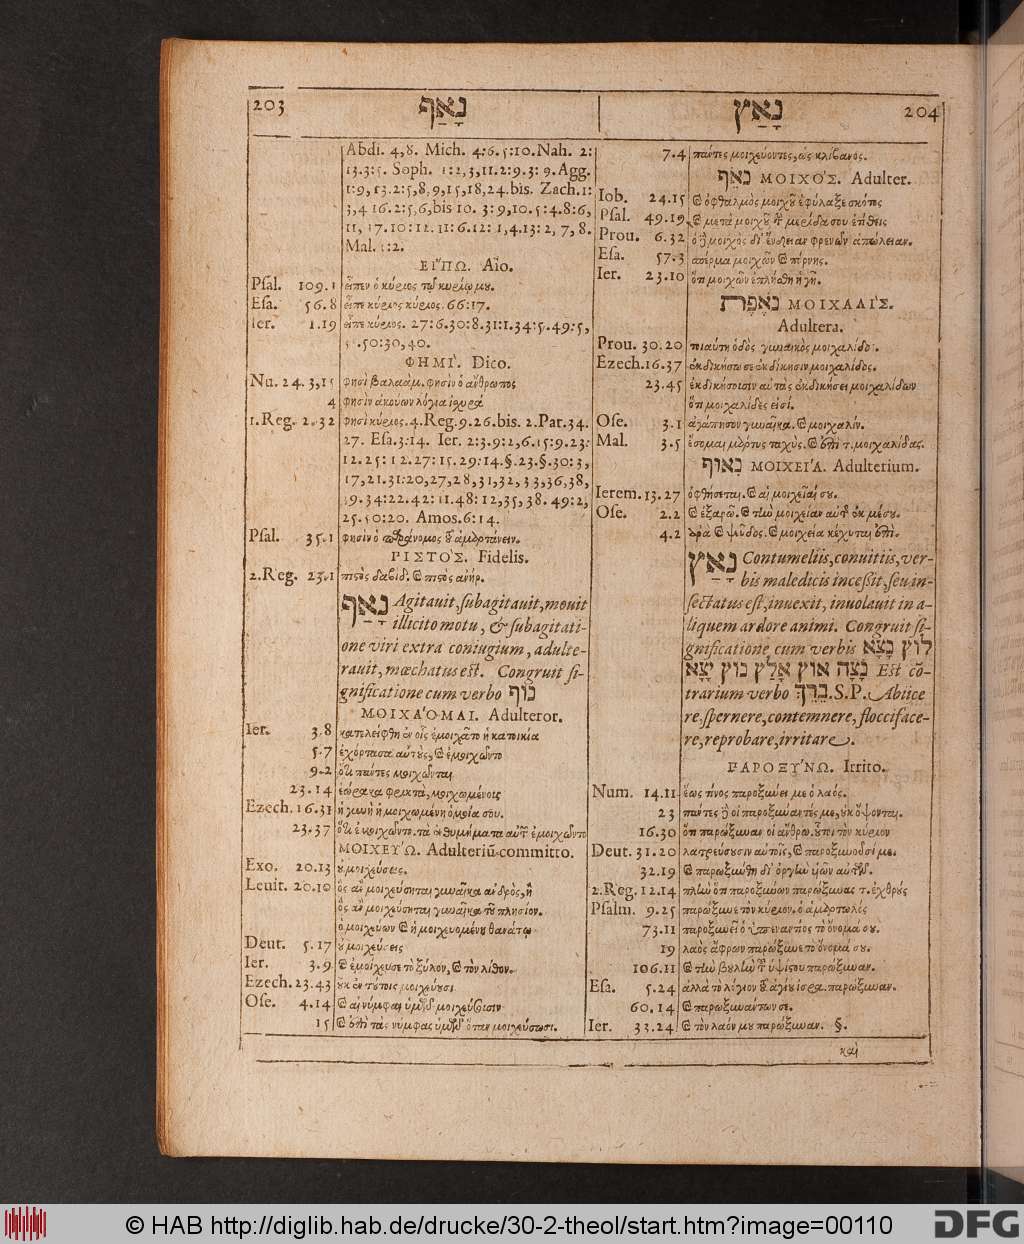 203
נָאַף
Abdi. 4,8. Mich. 4:6.5:10. Nah. 2:
13.3:5. Soph. 1:2,3,11.2:9.3: 9. Agg.
1:9,13.2:5,8,9,15,18,24.bis. Zach.1:
3,4 16.2:5,6,bis 10. 3:9,10.5:4.8:6,
11, 17.10:12.11:6.12: 1,4.13: 2, 7, 8.
Mal. 1:2.
ΕΙΠΩ. Aio.
Psal. 109.1 εἶπεν ὁ κύριος τῷ κυρίῳ μου.
Esa. 56.8 εἶπε κύριος κύριος. 66:17.
Ier. 1.19 εἶπε κύριος. 27:6.30:8.31:1.34:5.49:5,
50:30,40.
ΦΗΜΙ. Dico.
Nu. 24. 3,15 φησὶ βαλαάμ. φησὶν ὁ ἄνθρωπος
4 φησὶν ἀκούων λόγια ἰσχυρά
1.Reg. 2.32 φησὶ κύριος. 4.Reg.9.26.bis. 2.Par.34.
27. Esa.3:14. Ier. 2:3.9:2,6.15:9.23:
12.25:12.27:15.29:14.§.23.§.30:3,
17,21.31:20,27,28,31,32,33,36,38,
39.34:22.42:11.48:12,35,38. 49:2,
25.50:20. Amos.6:14.
Psal. 35.1 φησὶν ὁ παράνομος τοῦ ἁμαρτάνειν.
ΠΙΣΤΟΣ. Fidelis.
2.Reg. 23.1 πιστὸς δαβίδ. καὶ πιστὸς ἀνήρ.
נָאַף Agitauit, subagitauit, mouit
illicito motu, & subagitati-
one viri extra coniugium, adulte-
rauit, mœchatus est. Congruit si-
gnificatione cum verbo נוּף
ΜΟΙΧΑΟΜΑΙ. Adulteror.
Ier. 3.8 κατελείφθη ἐν οἷς ἐμοιχᾶτο ἡ κατοικία
5.7 ἐχόρτασα αὐτοὺς, καὶ ἐμοιχῶντο
9.2 ὅτι πάντες μοιχῶνται
23.14 ἑώρακα φρικτά, μοιχωμένους
Ezech. 16.31 ἡ γυνὴ ἡ μοιχωμένη ὁμοία σου.
23.37 ὅτι ἐμοιχῶντο. τὰ ἐνθυμήματα αὐτῶν ἐμοιχῶντο
ΜΟΙΧΕΥΩ. Adulteriū committo.
Exo. 20.13 οὐ μοιχεύσεις.
Leuit. 20.10 ὃς ἂν μοιχεύσηται γυναῖκα ἀνδρὸς, ἢ
ὃς ἂν μοιχεύσηται γυναῖκα τοῦ πλησίον.
ὁ μοιχεύων καὶ ἡ μοιχευομένη θανάτῳ
Deut. 5.17 οὐ μοιχεύσεις
Ier. 3.9 καὶ ἐμοίχευσε τὸ ξύλον, καὶ τὸν λίθον.
Ezech. 23.43 οὐκ ἐν τούτοις μοιχεύουσι
Ose. 4.14 καὶ αἱ νύμφαι ὑμῶν μοιχεύουσιν
15 καὶ ἐπὶ τὰς νύμφας ὑμῶν ὅταν μοιχεύωσι.
נָאַץ
204
7.4 πάντες μοιχεύοντες, ὡς κλίβανος.
נֹאֵף ΜΟΙΧΟΣ. Adulter.
Iob. 24.15 καὶ ὀφθαλμὸς μοιχοῦ ἐφύλαξε σκότος
Psal. 49.19 καὶ μετὰ μοιχῶν τὴν μερίδα σου ἐτίθεις
Prou. 6.32 ὁ δὲ μοιχὸς δι' ἔνδειαν φρενῶν ἀπώλειαν.
Esa. 57.3 σπέρμα μοιχῶν καὶ πόρνης.
Ier. 23.10 ὅτι μοιχῶν ἐπλήσθη ἡ γῆ.
נֹאֶפֶת ΜΟΙΧΑΛΙΣ.
Adultera.
Prou. 30.20 τοιαύτη ὁδὸς γυναικὸς μοιχαλίδος.
Ezech. 16.37 ἐκδικήσω σε ἐκδίκησιν μοιχαλίδος.
23.45 ἐκδικήσουσιν αὐτὰς ἐκδικήσει μοιχαλίδων
ὅτι μοιχαλίδες εἰσί.
Ose. 3.1 ἀγάπησον γυναῖκα. καὶ μοιχαλίν.
Mal. 3.5 ἔσομαι μάρτυς ταχύς. καὶ ἐπὶ τ. μοιχαλίδας.
נִאוּף ΜΟΙΧΕΙΑ. Adulterium.
Ierem. 13.27 ὀφθήσεται. καὶ αἱ μοιχεῖαί σου.
Ose. 2.2 καὶ ἐξαρῶ. καὶ τὴν μοιχείαν αὐτῆς ἐκ μέσου.
4.2 ἀρὰ καὶ ψεῦδος. καὶ μοιχεία κέχυται ἐπὶ.
נָאַץ Contumeliis, conuitiis, ver-
bis maledicis incessit, seu in-
sectatus est, inuexit, inuolauit in a-
liquem ardore animi. Congruit si-
gnificatione cum verbis נָצָא לוּץ
יָצָא נוּץ אָלַץ אוּץ נָצָה Est cō-
trarium verbo בֵּרֵךְ. S.P. Abiice
re, spernere, contemnere, floccifacere-
re, reprobare, irritare.
ΠΑΡΟΞΥΝΩ. Irrito.
Num. 14.11 ἕως τίνος παροξύνει με ὁ λαός.
23 πάντες δὲ οἱ παροξύναντές με, οὐκ ὄψονται.
16.30 ὅτι παρώξυναν οἱ ἄνθρω. οὗτοι τὸν κύριον
Deut. 31.20 λατρεύσουσιν αὐτοῖς, καὶ παροξυνοῦσί με.
32.19 καὶ παρωξύνθη δι' ὀργὴν υἱῶν αὐτοῦ.
2.Reg. 12.14 πλὴν ὅτι παροξύνων παρώξυνας τ. ἐχθρούς
Psalm. 9.25 παρώξυνε τὸν κύριον. ὁ ἁμαρτωλός
73.11 παροξυνεῖ ὁ ὑπεναντίος τὸ ὄνομά σου.
19 λαὸς ἄφρων παρώξυνε τὸ ὄνομά σου.
106.11 καὶ τὴν βουλὴν τοῦ ὑψίστου παρώξυναν.
Esa. 5.24 ἀλλὰ τὸ λόγιον τοῦ ἁγίου ἰσρα. παρώξυναν.
60.14 καὶ παροξυνάντων σε.
Ier. 33.24 καὶ τὸν λαόν μου παρώξυναν. §.
καὶ
© HAB http://diglib.hab.de/drucke/30-2-theol/start.htm?image=00110
DFG